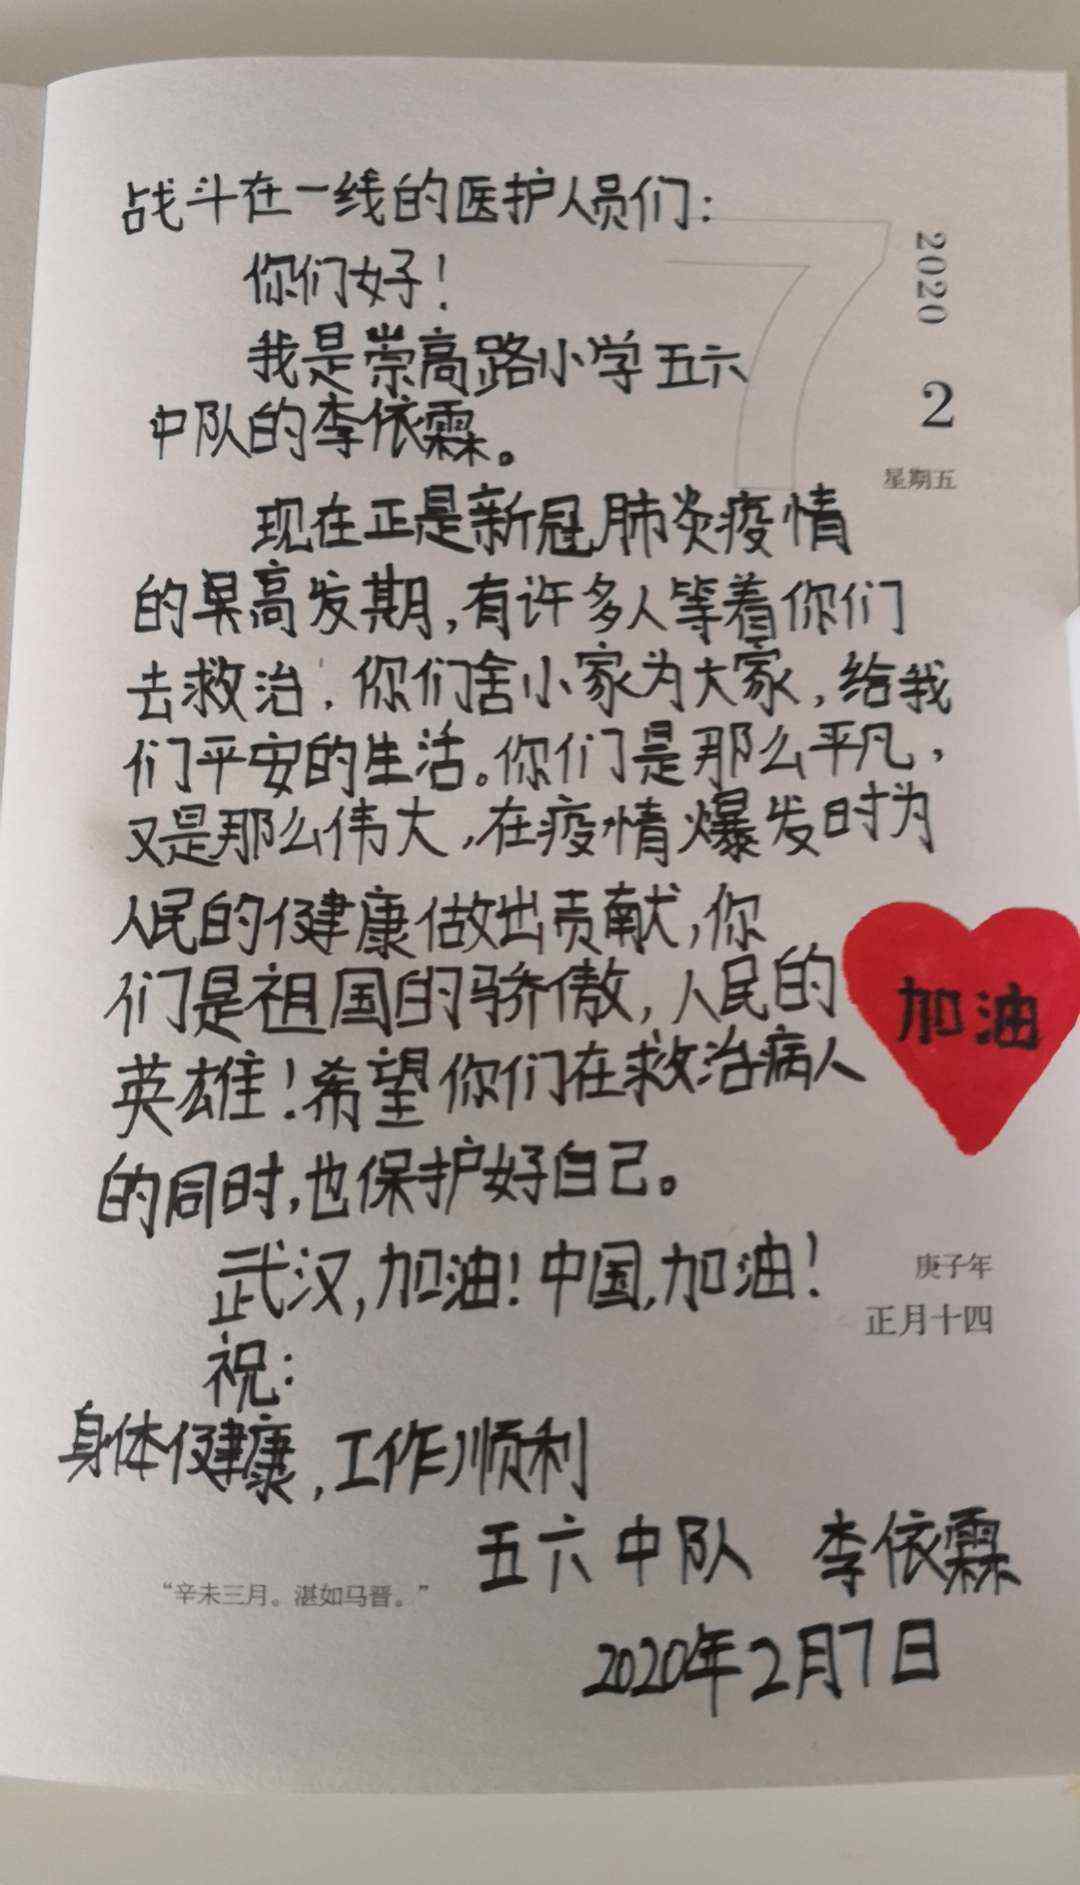 战斗在一线的医护人员们：
你们好！
我是崇高路小学五六
中队的李依霖。
现在正是新冠肺炎疫情
的早高发期，有许多人等着你们
去救治，你们舍小家为大家，给我
们平安的生活。你们是那么平凡，
又是那么伟大，在疫情爆发时为
人民的健康做出贡献，你
们是祖国的骄傲，人民的
英雄！希望你们在救治病人
的同时，也保护好自己。
武汉，加油！中国，加油！
祝：
身体健康，工作顺利
五六中队 李依霖
2020年2月7日
加油
7
2020
2
星期五
庚子年
正月十四
“辛未三月。湛如马晋。”